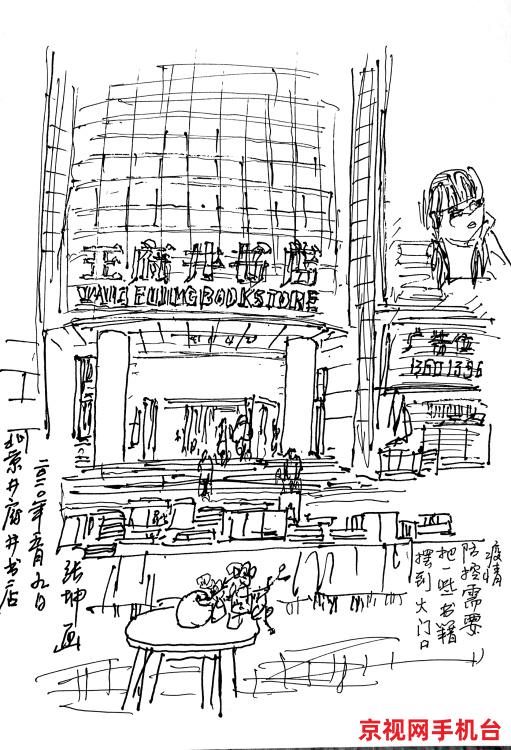 王府井书店
WANGFUJINGBOOKSTORE
广告位
13601396
疫情
防控需要
把一些书籍
摆到大门口
北京王府井书店
二〇二〇年五月九日
张坤画
京视网手机台